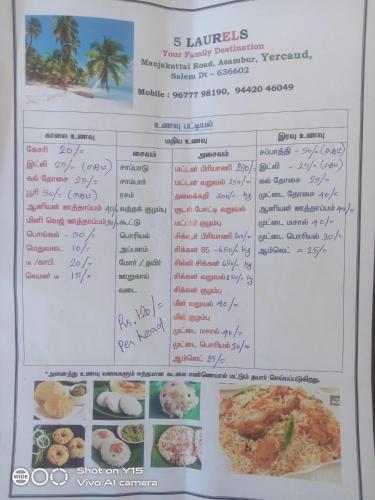 5 LAURELS
Your Family Destination
Manjakuttai Road, Asambur, Yercaud,
Salem Dt - 636602
Mobile : 96777 98190, 94420 46049
உணவு பட்டியல்
காலை உணவு
கேசரி 20/=
இட்லி 25/=
கல் தோசை 25/=
பூரி 50/=
ஆனியன் ஊத்தாப்பம் 40/=
மினி வெஜ் ஊத்தாப்பம்
பொங்கல் - 50/=
மெதுவடை 10/=
டீ /காபி 20/=
லெமன் டீ 15/=
மதிய உணவு
சைவம்
சாப்பாடு
சாம்பார்
ரசம்
வத்தக் குழம்பு
கூட்டு
பொரியல்
அப்பளம்
மோர் / தயிர்
ஊறுகாய்
வடை
Rs. 120/=
Per head
அசைவம்
மட்டன் பிரியாணி
மட்டன் வறுவல்
தலைக்கறி 300/= kg
குடல் போட்டி வறுவல்
மட்டன் குழம்பு
சிக்கன் பிரியாணி
சிக்கன் 65 - 650/= kg
சில்லி சிக்கன் 650/= kg
சிக்கன் வறுவல் kg
சிக்கன் குழம்பு
மீன் வறுவல் 40/=
மீன் குழம்பு
முட்டை மசால் 40/=
முட்டை பொரியல் 30/=
ஆம்லெட் 25/=
இரவு உணவு
சப்பாத்தி - 50/=
இட்லி - 25/=
கல் தோசை 25/=
முட்டை தோசை 40/=
ஆனியன் ஊத்தாப்பம் 40/=
முட்டை மசால் 40/=
முட்டை பொரியல் 30/=
ஆம்லெட் = 25/=
*அனைத்து உணவு வகைகளும் சுத்தமான கடலை எண்ணெயால் மட்டும் தயார் செய்யப்படுகிறது.
WIDE
Shot on Y15
Vivo AI camera